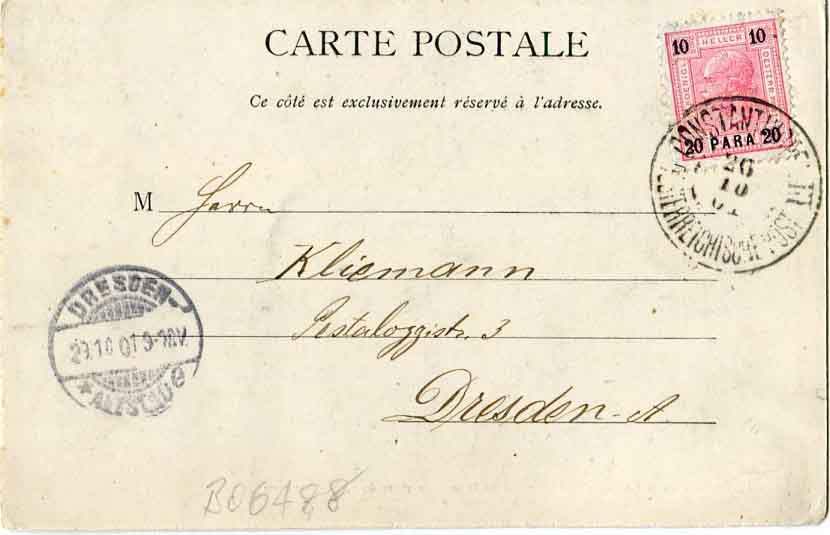 CARTE POSTALE
Ce côté est exclusivement réservé à l'adresse.
10 HELLER 10
20 PARA 20
CONSTANTINOPEL III
26
10
01
ÖSTERREICHISCHE POST
M Herrn
Kliemann
Pestalozzistr. 3
Dresden-A.
DRESDEN-
29.10 01 9-10V.
* ALTSTADT
B06488